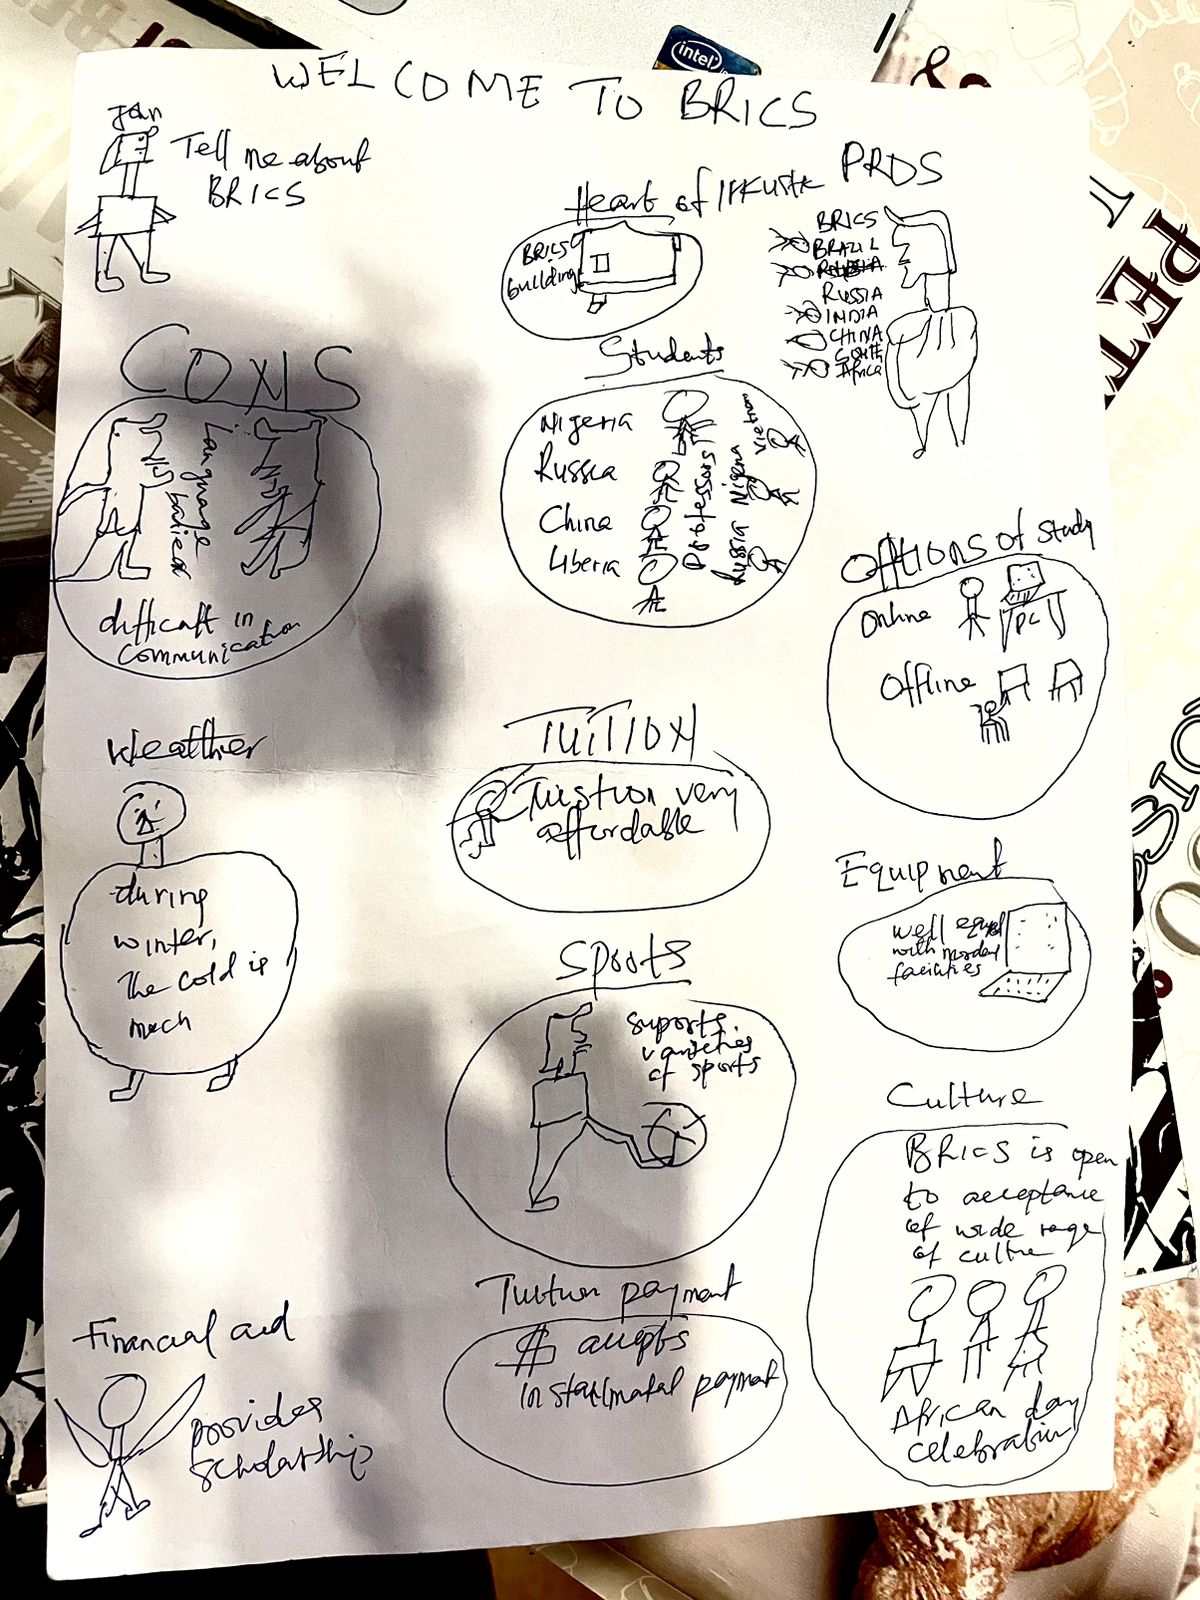 WELCOME TO BRICS
Jan
Tell me about
BRICS
PROS
Heart of Irkustk
BRICS
building
BRICS
BRAZIL
RUSSIA
INDIA
CHINA
South
Africa
CONS
Language
barier
difficalt in
communication
Students
Nigeria
Russia
China
Liberia
Professors
Vietnam
Nigeria
Russia
Offtions of study
Online
PC
Offline
Weather
during
winter,
the cold is
much
TUITION
Tuistion very
affordable
Equipment
well equed
with morden
facicities
Sports
suports
varieties
of sports
Culture
BRICS is open
to acceptance
of wide range
of culture
African day
celebration
Tuituon payment
$ accepts
instaulmatal payment
Financial aid
provides
scholarship
intel
PETT